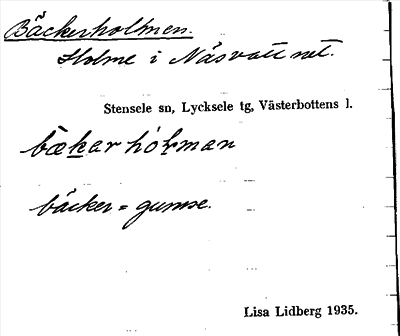 Bäckerholmen.
Holme i Näsvattnet.
Stensele sn, Lycksele tg, Västerbottens l.
bæḵar hólman
bäcker = gumse.
Lisa Lidberg 1935.